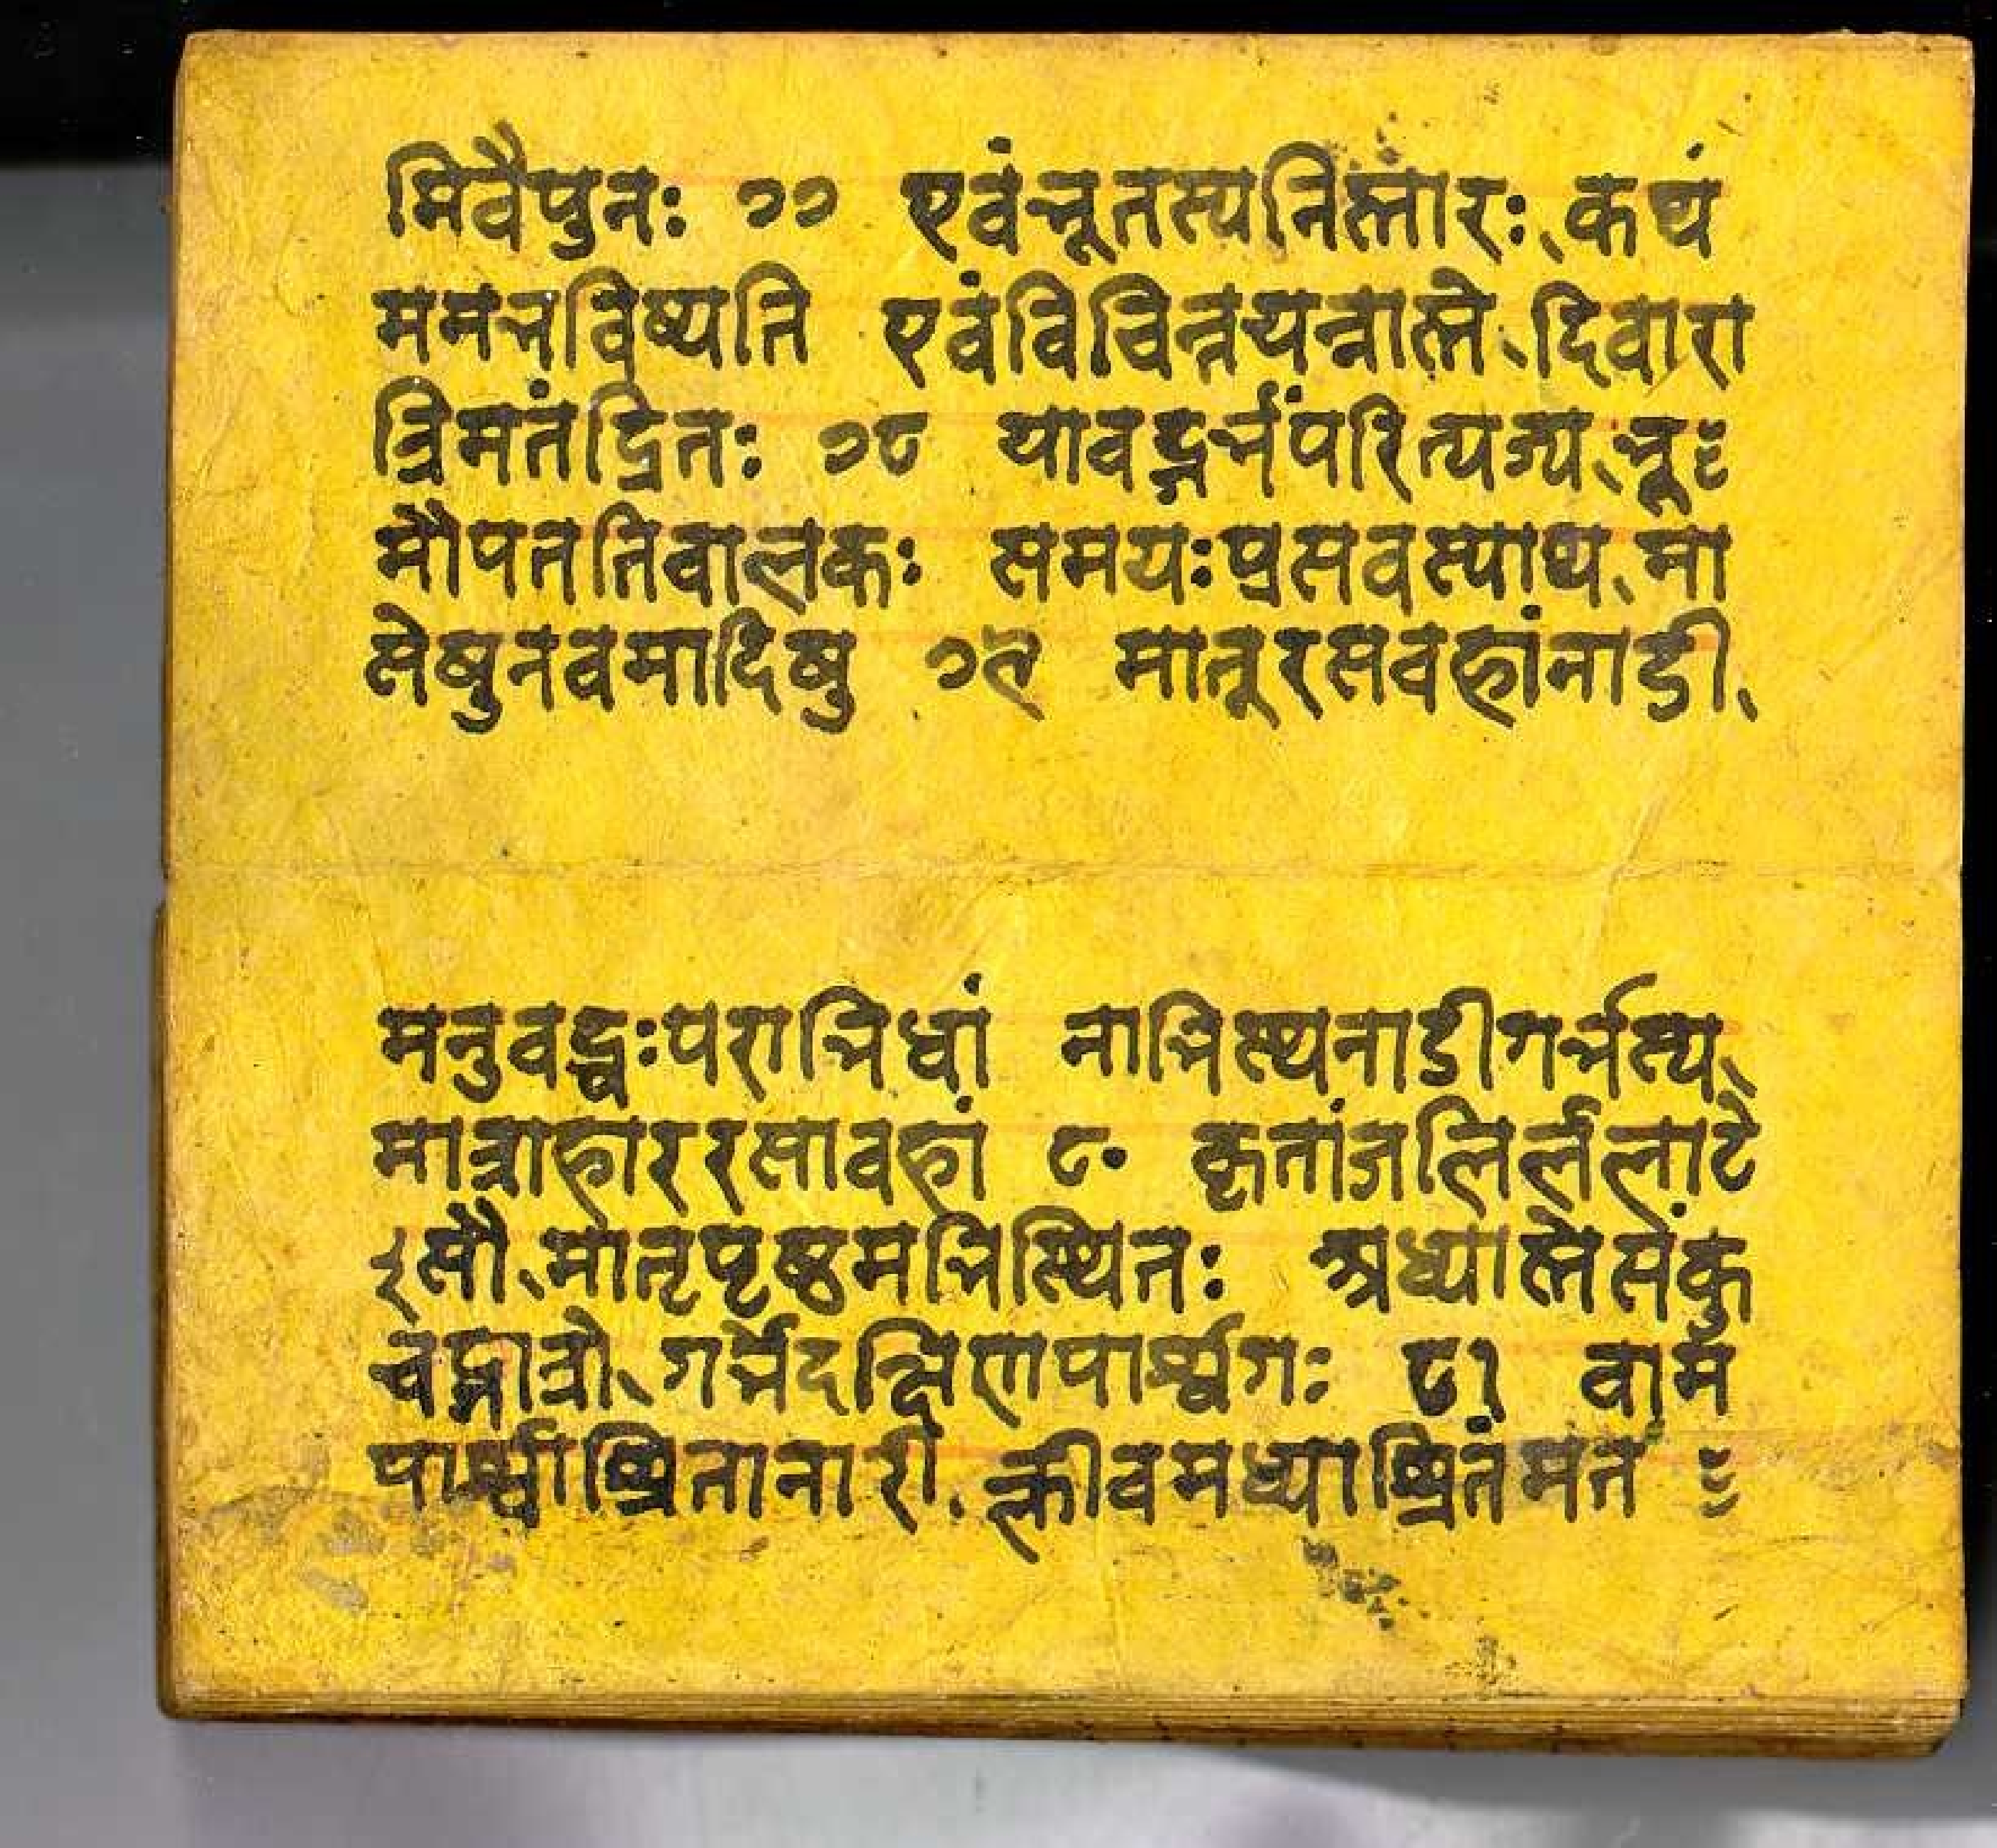 मिवैपुनः ७७ एवंभूतस्यनिस्तारः कथं
ममभविष्यति एवंविचिन्तयन्नास्ते दिवारा
त्रिमतंद्रितः ७८ यावद्गर्भंपरित्यज्य भू
मौपततिवालकः समयःप्रसवस्याथ मा
सेषुनवमादिषु ७९ मातूरसवहांनाडी
मनुवद्धःपराभिधां नाभिस्थनाडीगर्भस्य
मात्राहाररसावहां ८० कृतांजलिर्ललाटे
सौ मातृपृष्ठमभिस्थितः अध्यास्तेसंकु
चद्गात्रो गर्भेदक्षिणपार्श्वगः ८१ वाम
पार्श्वाश्रितानारी क्लीवमध्याश्रितंमत